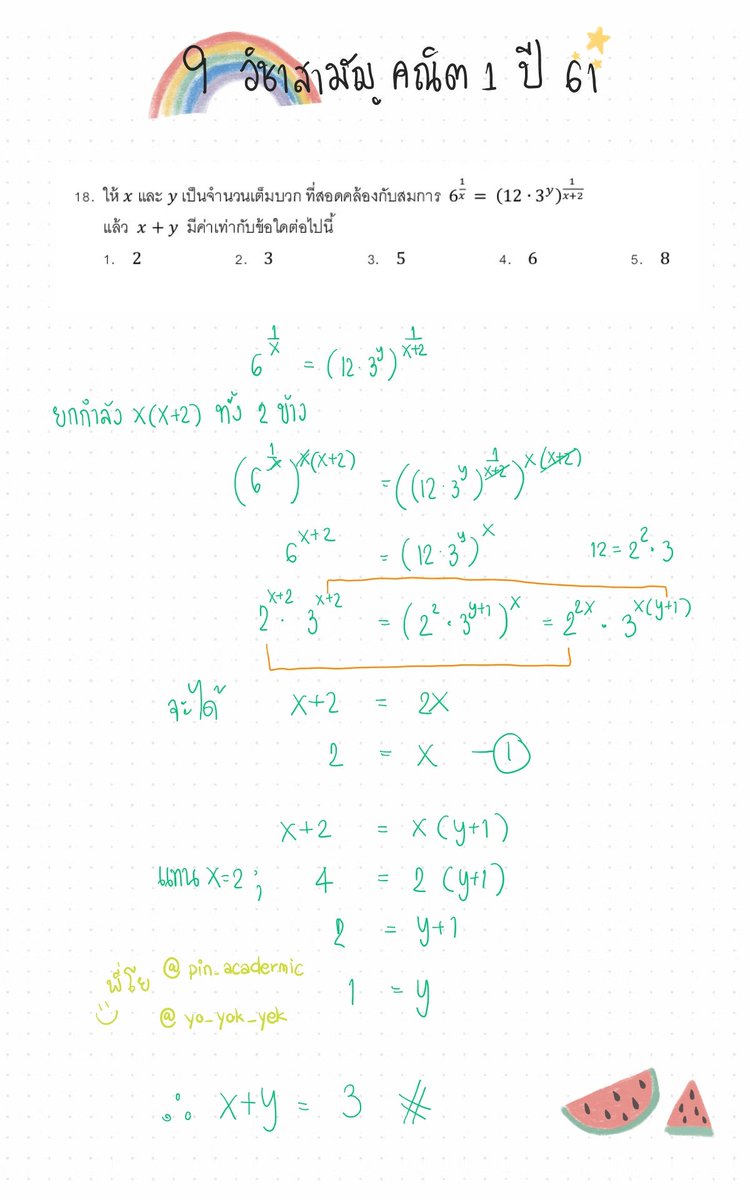 9 วิชาสามัญ คณิต 1 ปี 61
18. ให้ x และ y เป็นจำนวนเต็มบวก ที่สอดคล้องกับสมการ 6^(1/x) = (12 · 3^y)^(1/(x+2))
แล้ว x + y มีค่าเท่ากับข้อใดต่อไปนี้
1. 2 2. 3 3. 5 4. 6 5. 8
6^(1/x) = (12 · 3^y)^(1/(x+2))
ยกกำลัง x(x+2) ทั้ง 2 ข้าง
(6^(1/x))^(x(x+2)) = ((12 · 3^y)^(1/(x+2)))^(x(x+2))
6^(x+2) = (12 · 3^y)^x 12 = 2^2 · 3
2^(x+2) · 3^(x+2) = (2^2 · 3^(y+1))^x = 2^(2x) · 3^(x(y+1))
จะได้ x+2 = 2x
2 = x —①
x+2 = x(y+1)
แทน x=2 ; 4 = 2(y+1)
2 = y+1
พี่โย @pin_acadermic
1 = y
@yo_yok_yek
∴ x+y = 3 #